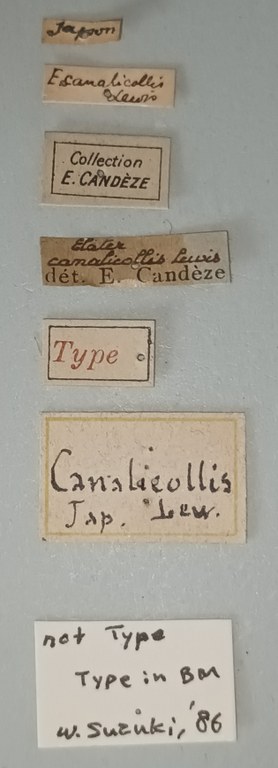 Japon
E canalicollis
Lewis
Collection
E. CANDÈZE
Elater
canalicollis Lewis
dét. E. Candèze
Type
Canalicollis
Jap. Lew.
not Type
Type in BM
W. Suzuki, '86